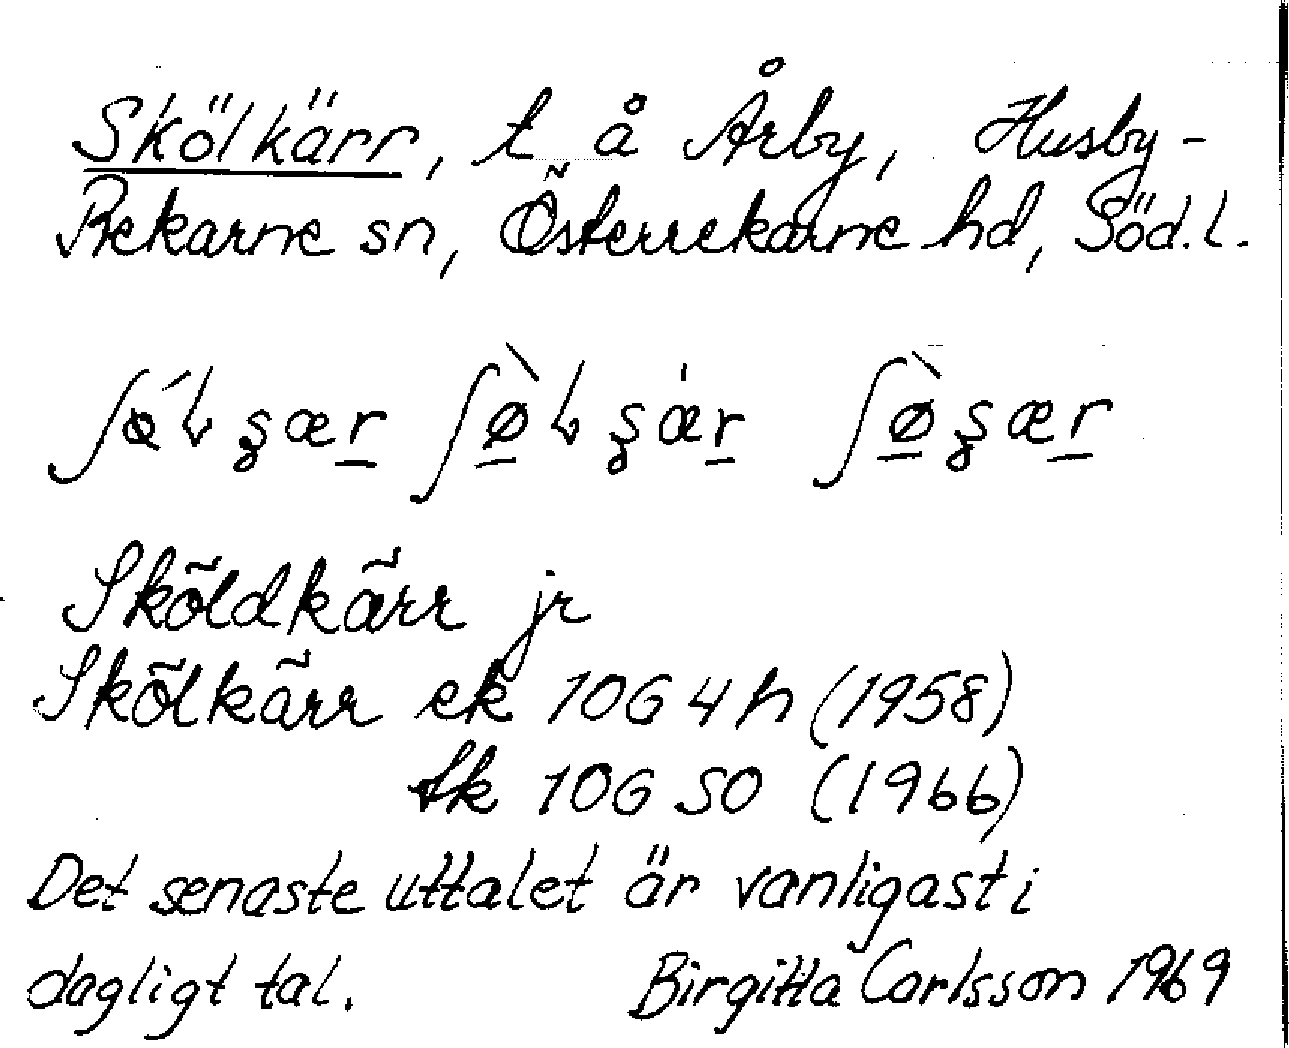 Skölkärr, t å Årby, Husby-
Rekarne sn, Österrekarne hd, Söd.l.
Sköldkärr jr
Skölkärr ek 10G 4h (1958)
tk 10G SO (1966)
Det senaste uttalet är vanligast i
dagligt tal. Birgitta Carlsson 1969